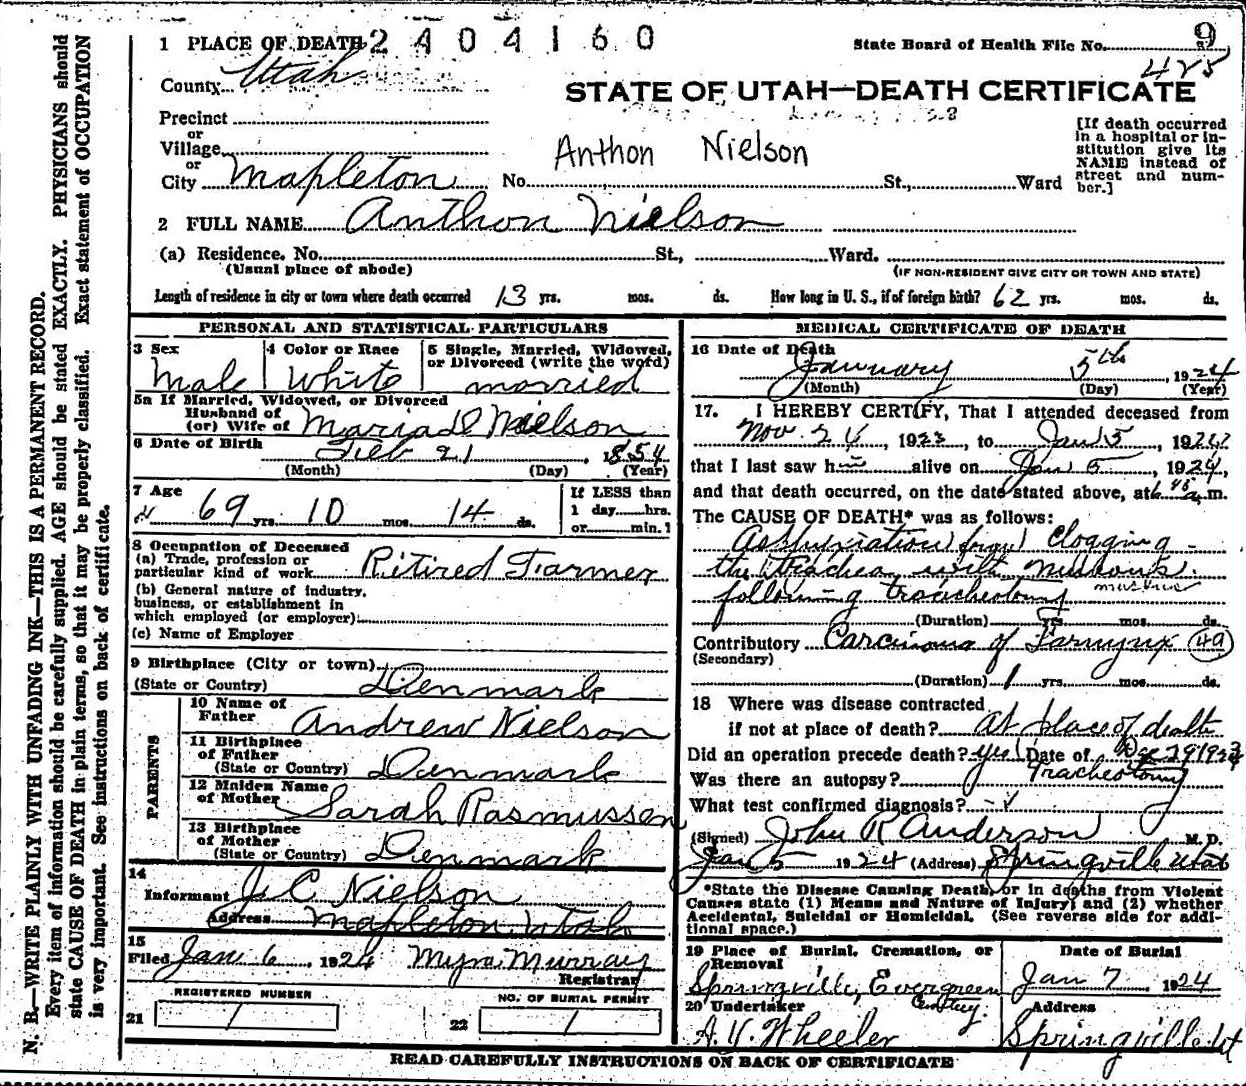 1 PLACE OF DEATH 2404160
State Board of Health File No. 9
425
County Utah
STATE OF UTAH—DEATH CERTIFICATE
Precinct
or
Village
or
City Mapleton No. St., Ward
Anthon Nielson
[If death occurred
in a hospital or in-
stitution give its
NAME instead of
street and num-
ber.]
2 FULL NAME Anthon Nielson
(a) Residence. No. St., Ward.
(Usual place of abode) (IF NON-RESIDENT GIVE CITY OR TOWN AND STATE)
Length of residence in city or town where death occurred 13 yrs. mos. ds. How long in U. S., if of foreign birth? 62 yrs. mos. ds.
PERSONAL AND STATISTICAL PARTICULARS
3 Sex
Male
4 Color or Race
White
5 Single, Married, Widowed,
or Divorced (write the word)
married
5a If Married, Widowed, or Divorced
Husband of
(or) Wife of Maria D Nielson
6 Date of Birth
Feb 21, 1854
(Month) (Day) (Year)
7 Age
69 yrs. 10 mos. 14 ds.
If LESS than
1 day hrs.
or min.
8 Occupation of Deceased
(a) Trade, profession or
particular kind of work Ritired Farmer
(b) General nature of industry,
business, or establishment in
which employed (or employer)
(c) Name of Employer
9 Birthplace (City or town)
(State or Country) Denmark
PARENTS
10 Name of
Father Andrew Nielson
11 Birthplace
of Father
(State or Country) Denmark
12 Maiden Name
of Mother Sarah Rasmussen
13 Birthplace
of Mother
(State or Country) Denmark
14
Informant J. C. Nielson
Address Mapleton Utah
15
Filed Jan 6, 1924 Myra Murray
Registrar
REGISTERED NUMBER
21 1
NO. OF BURIAL PERMIT
22 1
MEDICAL CERTIFICATE OF DEATH
16 Date of Death
January 5th, 1924
(Month) (Day) (Year)
17. I HEREBY CERTIFY, That I attended deceased from
Nov. 26, 1923, to Jan 5, 192
that I last saw h alive on Jan 5, 1924,
and that death occurred, on the date stated above, at 6 45 a. m.
The CAUSE OF DEATH* was as follows:
clogging
the trachea with
following tracheotomy
(Duration) yrs. mos. ds.
Contributory Carcinoma of Larnynx 49
(Secondary)
(Duration) 1 yrs. mos. ds.
18 Where was disease contracted
if not at place of death? At place of death
Did an operation precede death? yes Date of Dec 29 192
Was there an autopsy? Tracheotomy
What test confirmed diagnosis?
(Signed) John R Anderson M. D.
Jan 5 1924 (Address) Springville Utah
*State the Disease Causing Death, or in deaths from Violent
Causes state (1) Means and Nature of Injury; and (2) whether
Accidental, Suicidal or Homicidal. (See reverse side for addi-
tional space.)
19 Place of Burial, Cremation, or
Removal
Springville, Evergreen
Cemetery.
Date of Burial
Jan 7, 1924
20 Undertaker
A. Y. Wheeler
Address
Springville Ut
READ CAREFULLY INSTRUCTIONS ON BACK OF CERTIFICATE
N. B.—WRITE PLAINLY WITH UNFADING INK—THIS IS A PERMANENT RECORD.
Every item of information should be carefully supplied. AGE should be stated EXACTLY. PHYSICIANS should
state CAUSE OF DEATH in plain terms, so that it may be properly classified. Exact statement of OCCUPATION
is very important. See instructions on back of certificate.